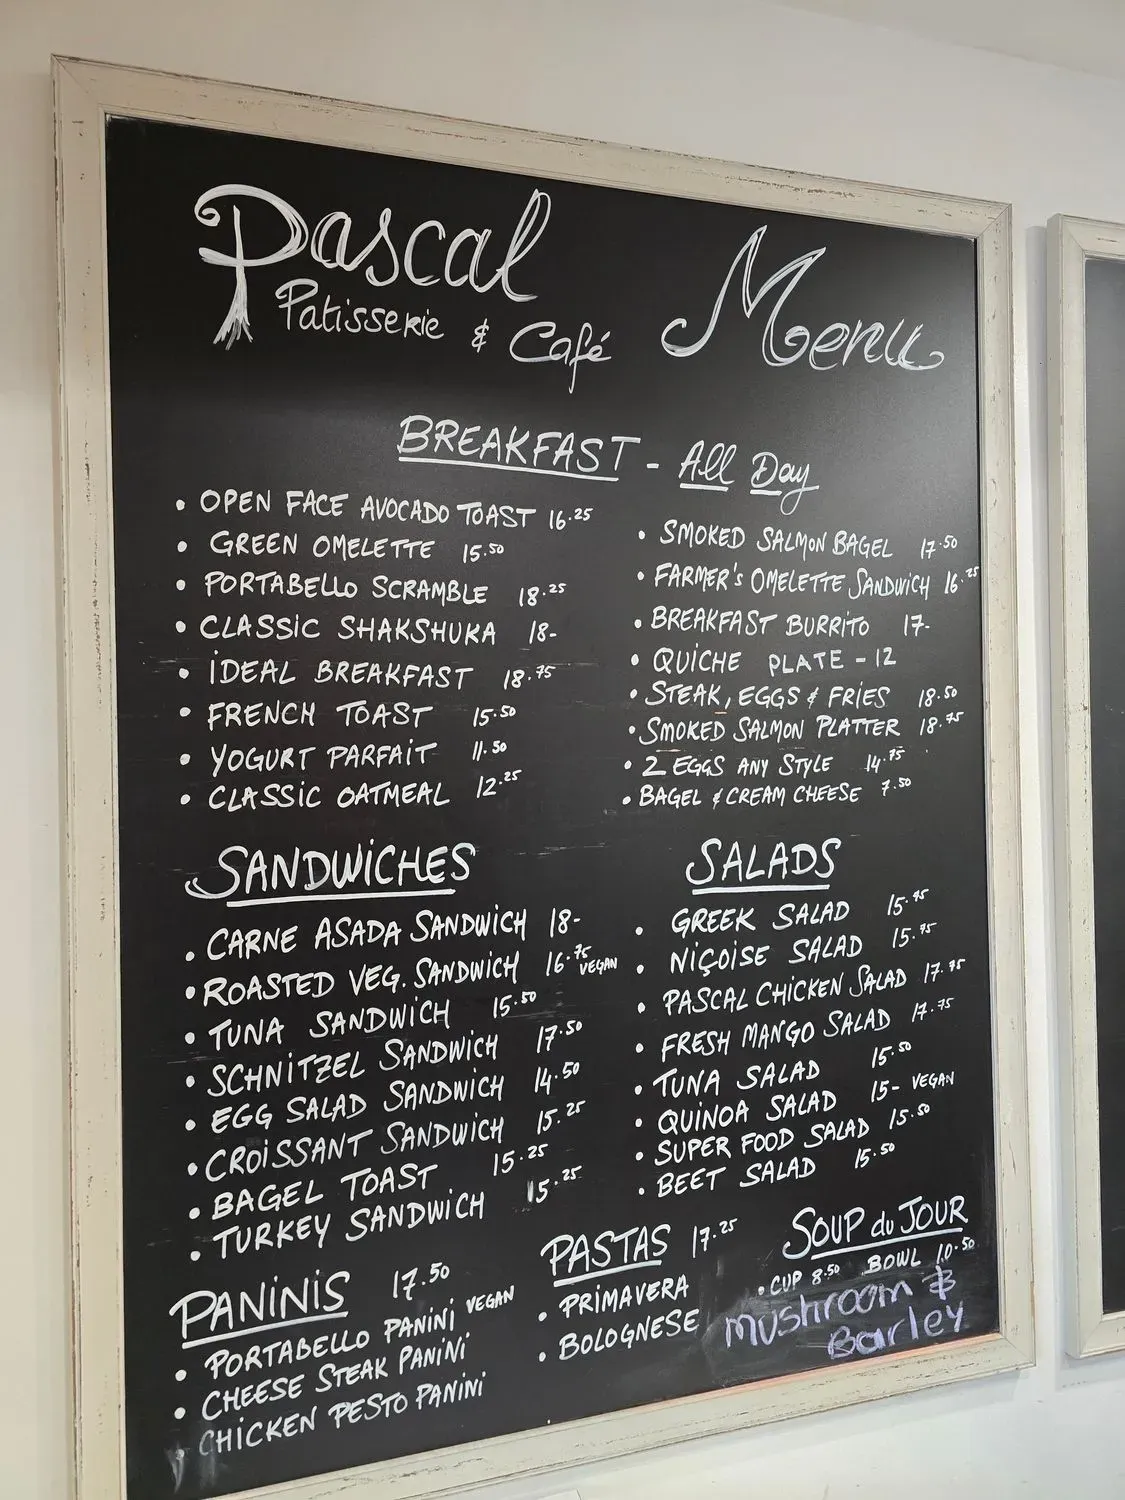 Pascal
Patisserie & Café
Menu
BREAKFAST - All Day
• OPEN FACE AVOCADO TOAST 16.25
• GREEN OMELETTE 15.50
• PORTABELLO SCRAMBLE 18.25
• CLASSIC SHAKSHUKA 18-
• IDEAL BREAKFAST 18.75
• FRENCH TOAST 15.50
• YOGURT PARFAIT 11.50
• CLASSIC OATMEAL 12.25
• SMOKED SALMON BAGEL 17.50
• FARMER'S OMELETTE SANDWICH 16.25
• BREAKFAST BURRITO 17-
• QUICHE PLATE - 12
• STEAK, EGGS & FRIES 18.50
• SMOKED SALMON PLATTER 18.75
• 2 EGGS ANY STYLE 14.75
• BAGEL & CREAM CHEESE 7.50
SANDWICHES
• CARNE ASADA SANDWICH 18-
• ROASTED VEG. SANDWICH 16.75 VEGAN
• TUNA SANDWICH 15.50
• SCHNITZEL SANDWICH 17.50
• EGG SALAD SANDWICH 14.50
• CROISSANT SANDWICH 15.25
• BAGEL TOAST 15.25
• TURKEY SANDWICH 15.25
SALADS
• GREEK SALAD 15.95
• NIÇOISE SALAD 15.75
• PASCAL CHICKEN SALAD 17.75
• FRESH MANGO SALAD 17.75
• TUNA SALAD 15.50
• QUINOA SALAD 15- VEGAN
• SUPER FOOD SALAD 15.50
• BEET SALAD 15.50
PANINIS 17.50
• PORTABELLO PANINI VEGAN
• CHEESE STEAK PANINI
CHICKEN PESTO PANINI
PASTAS 17.25
• PRIMAVERA
• BOLOGNESE
SOUP du JOUR
• CUP 8.50 BOWL 10.50
Mushroom &
Barley